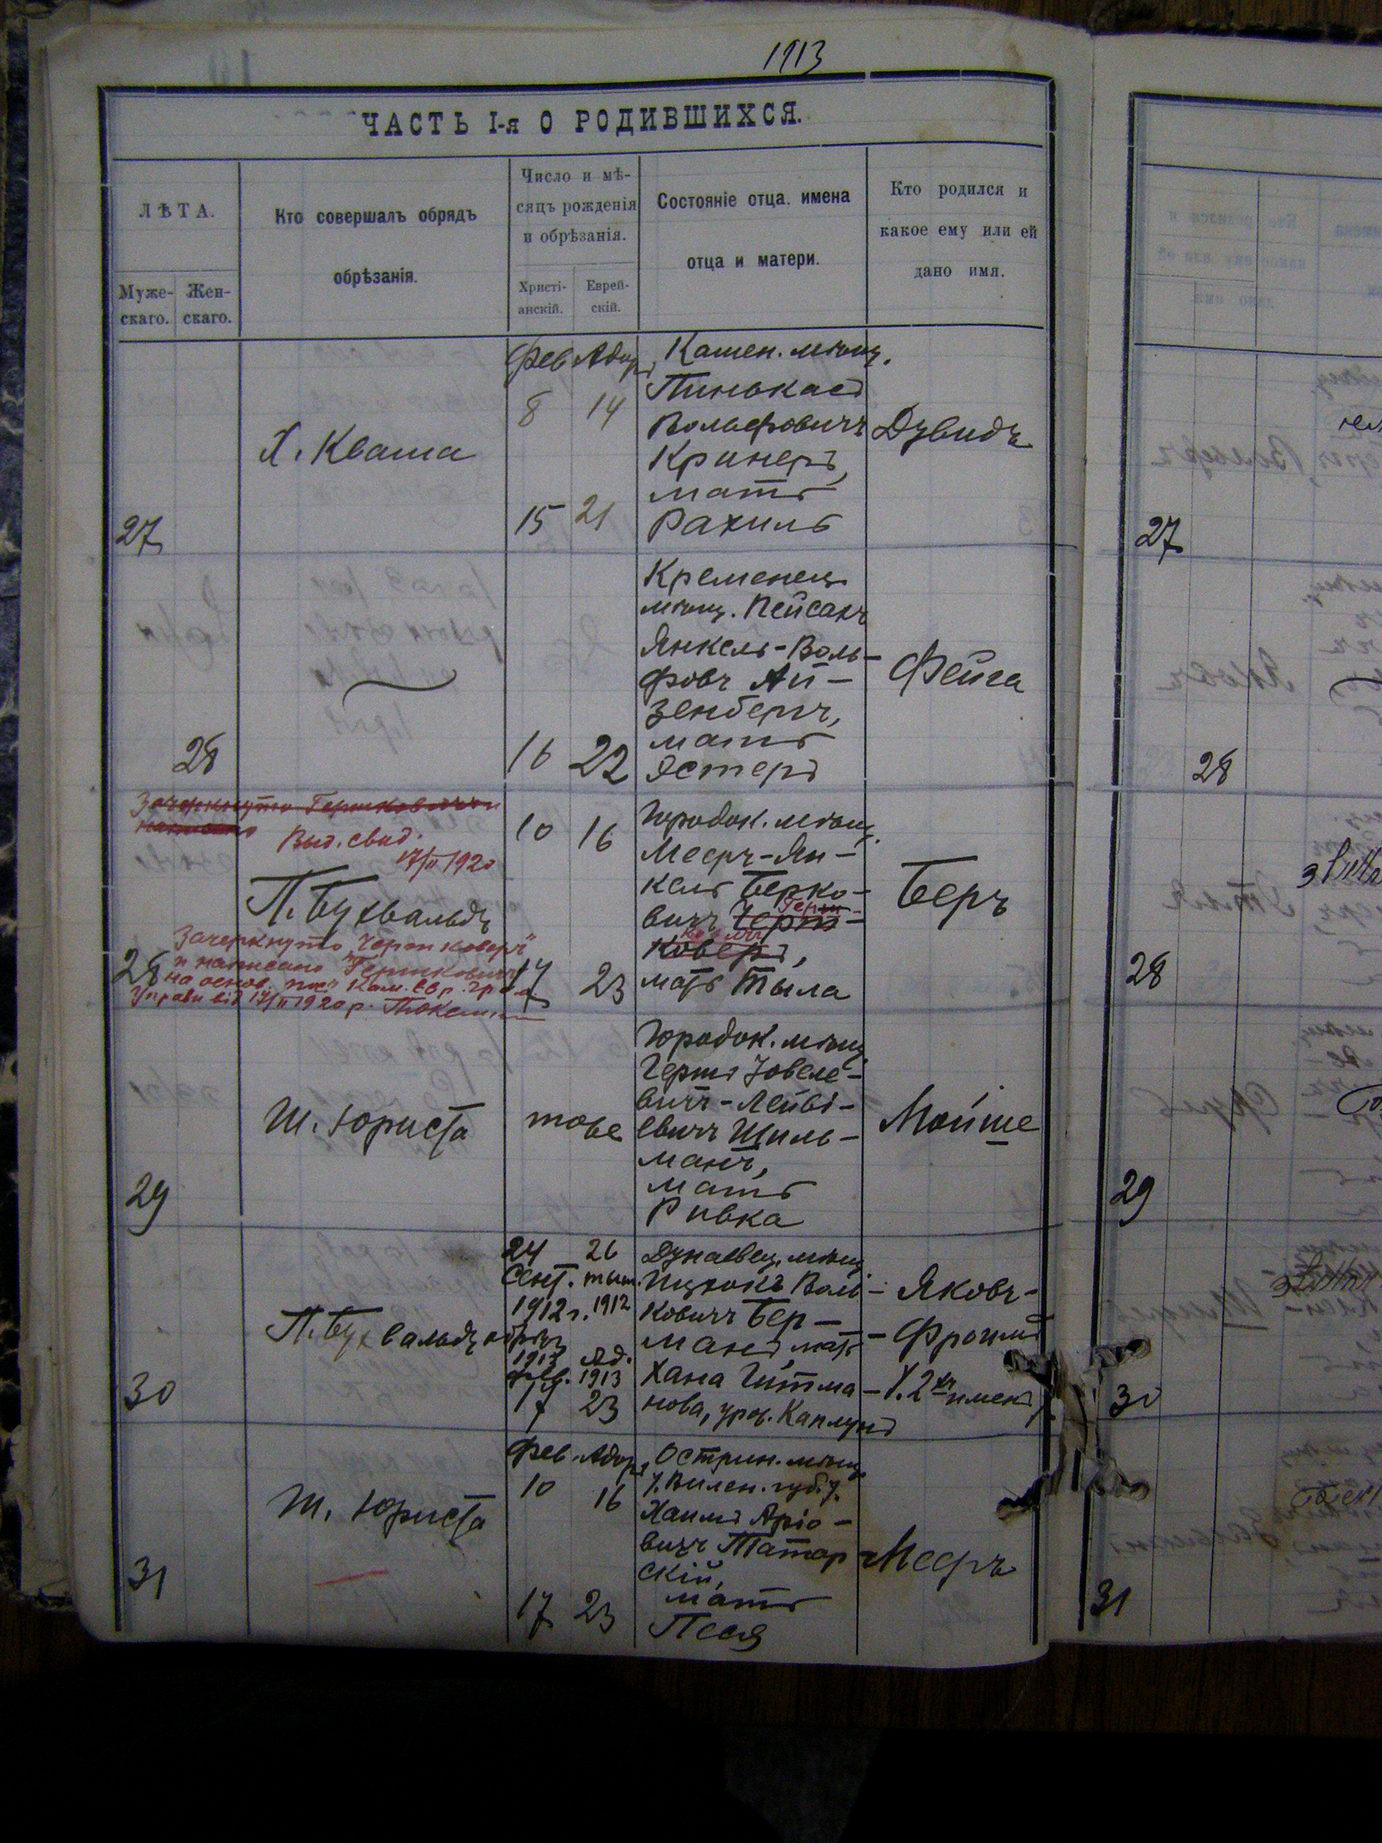 1913
ЧАСТЬ I-я О РОДИВШИХСЯ.
ЛѢТА.
Муже-
скаго.
Жен-
скаго.
Кто совершалъ обрядъ
обрѣзанія.
Число и мѣ-
сяцъ рожденія
и обрѣзанія.
Христі-
анскій.
Еврей-
скій.
Состояніе отца, имена
отца и матери.
Кто родился и
какое ему или ей
дано имя.
27
Х. Кваша
Фев. Адаръ
8 14
15 21
Камен. мѣщ.
Пинькасъ
Вольфовичъ
Кринеръ,
мать
Рахиль
Дувидъ
28
16 22
Кременец.
мѣщ. Пейсахъ
Янкель-Воль-
фовъ Ай-
зенбергъ,
мать
Эстеръ
Фейга
Зачеркнуто Гершковичъ
Выд. свид.
17/II 1920
П. Бухвальдъ
Зачеркнуто "Черт коверъ"
и написано "Гершковичъ"
на основ.
Управи від 17/II 1920 р.
28
10 16
17 23
Городок. мѣщ.
Мееръ-Ян-
кель Берко-
вичъ Черт-
Герш-
коверъ,
ковичъ
мать Тыла
Беръ
29
Ш. Юриста
тоже
Городок. мѣщ.
Гершъ Іовеле-
вичъ-Лейбі-
евичъ Шиль-
манъ,
мать
Ривка
Мойше
30
П. Бухвальдъ
24 26
Сент. тиш.
1912 г. 1912
обрѣз.
1913 Ад.
фев. 1913
17 23
Дунаевец. мѣщ.
Ицхокъ Воль-
ковичъ Бер-
манъ, мать
Хана Гитма-
нова, урож. Каплунъ
Яковъ-
Фроимъ
(2хъ именъ)
31
Ш. Юриста
Фев. Адаръ
10 16
17 23
Острин. мѣщ.
(Вилен. губ.)
Хаимъ Аріо-
вичъ Татар-
скій,
мать
Песя
Мееръ
27
28
28
29
30
31